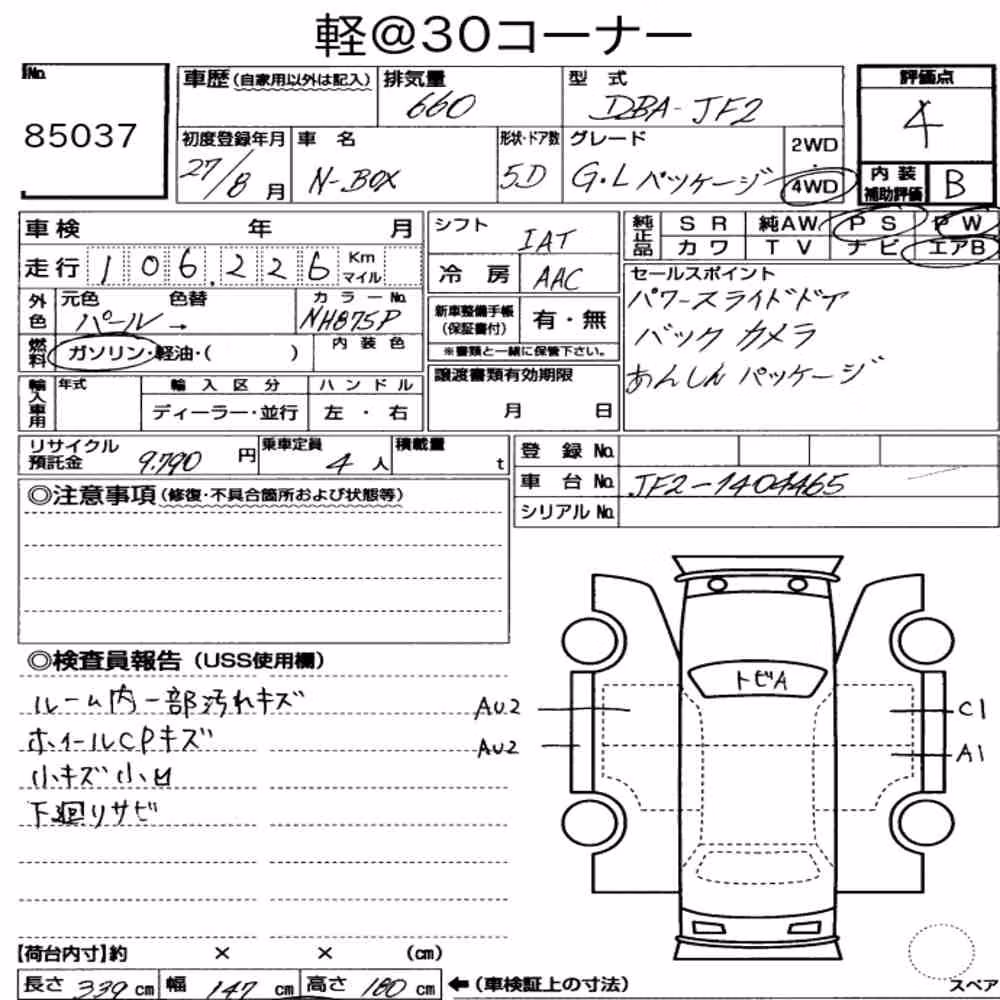 軽@30コーナー
No.
85037
車歴(自家用以外は記入)
排気量
660
型 式
DBA-JF2
評価点
4
初度登録年月
27/8月
車 名
N-BOX
形状・ドア数
5D
グレード
G・Lパッケージ
2WD
・
4WD
内装
補助評価
B
車検 年 月
走行 106,226 Km
マイル
シフト
IAT
冷房 AAC
純正品
SR 純AW PS PW
カワ TV ナビ エアB
外色
元色 色替
パール→
カラーNo.
NH875P
燃料
ガソリン・軽油・( )
内装色
新車整備手帳
(保証書付)
有・無
※書類と一緒に保管下さい。
セールスポイント
パワースライドドア
バックカメラ
あんしんパッケージ
輸入車用
年式
輸入区分
ディーラー・並行
ハンドル
左・右
譲渡書類有効期限
月 日
リサイクル
預託金 9.790 円
乗車定員
4人
積載量
t
登録No.
車台No. JF2-1404465
シリアルNo.
◎注意事項(修復・不具合箇所および状態等)
◎検査員報告(USS使用欄)
ルーム内一部汚れキズ
ホイールCPキズ
小キズ小凹
下廻りサビ
トビA
AU2
C1
AU2
A1
【荷台内寸】約 × × (cm)
長さ 339 cm 幅 147 cm 高さ 180 cm
←(車検証上の寸法)
スペア